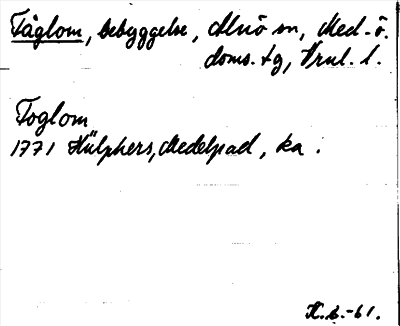 Tåglom, bebyggelse, Alnö sn, Med.ö.
doms. tg, Vnrl. l.
Toglom
1771 Hülphers, Medelpad, ka.
H.b.-61.